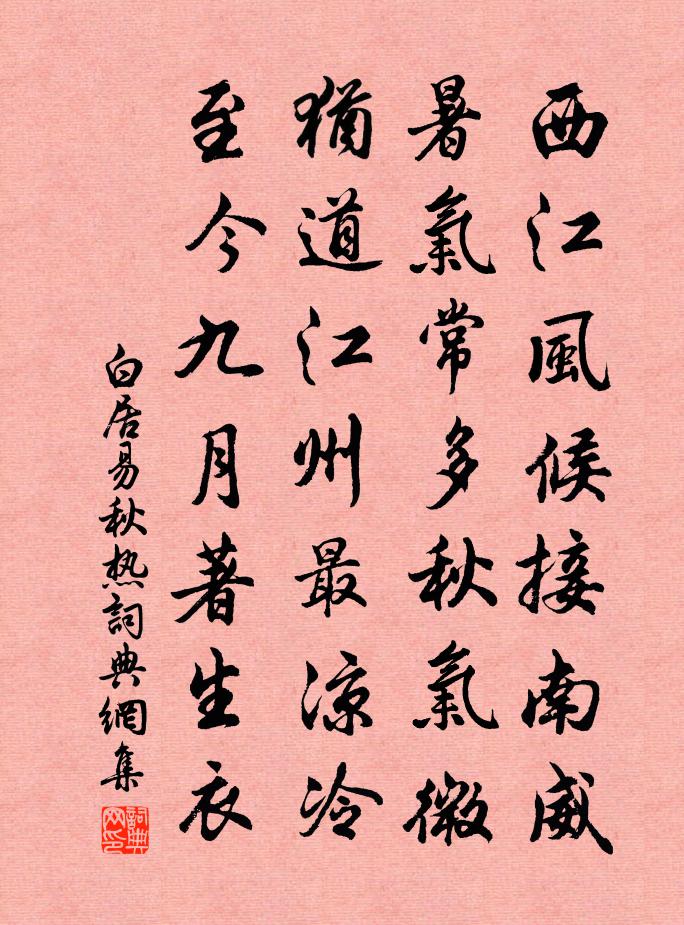 西江風候接南威
暑氣常多秋氣微
猶道江州最凉冷
至今九月著生衣
白居易秋热詞典網集
詞典网印